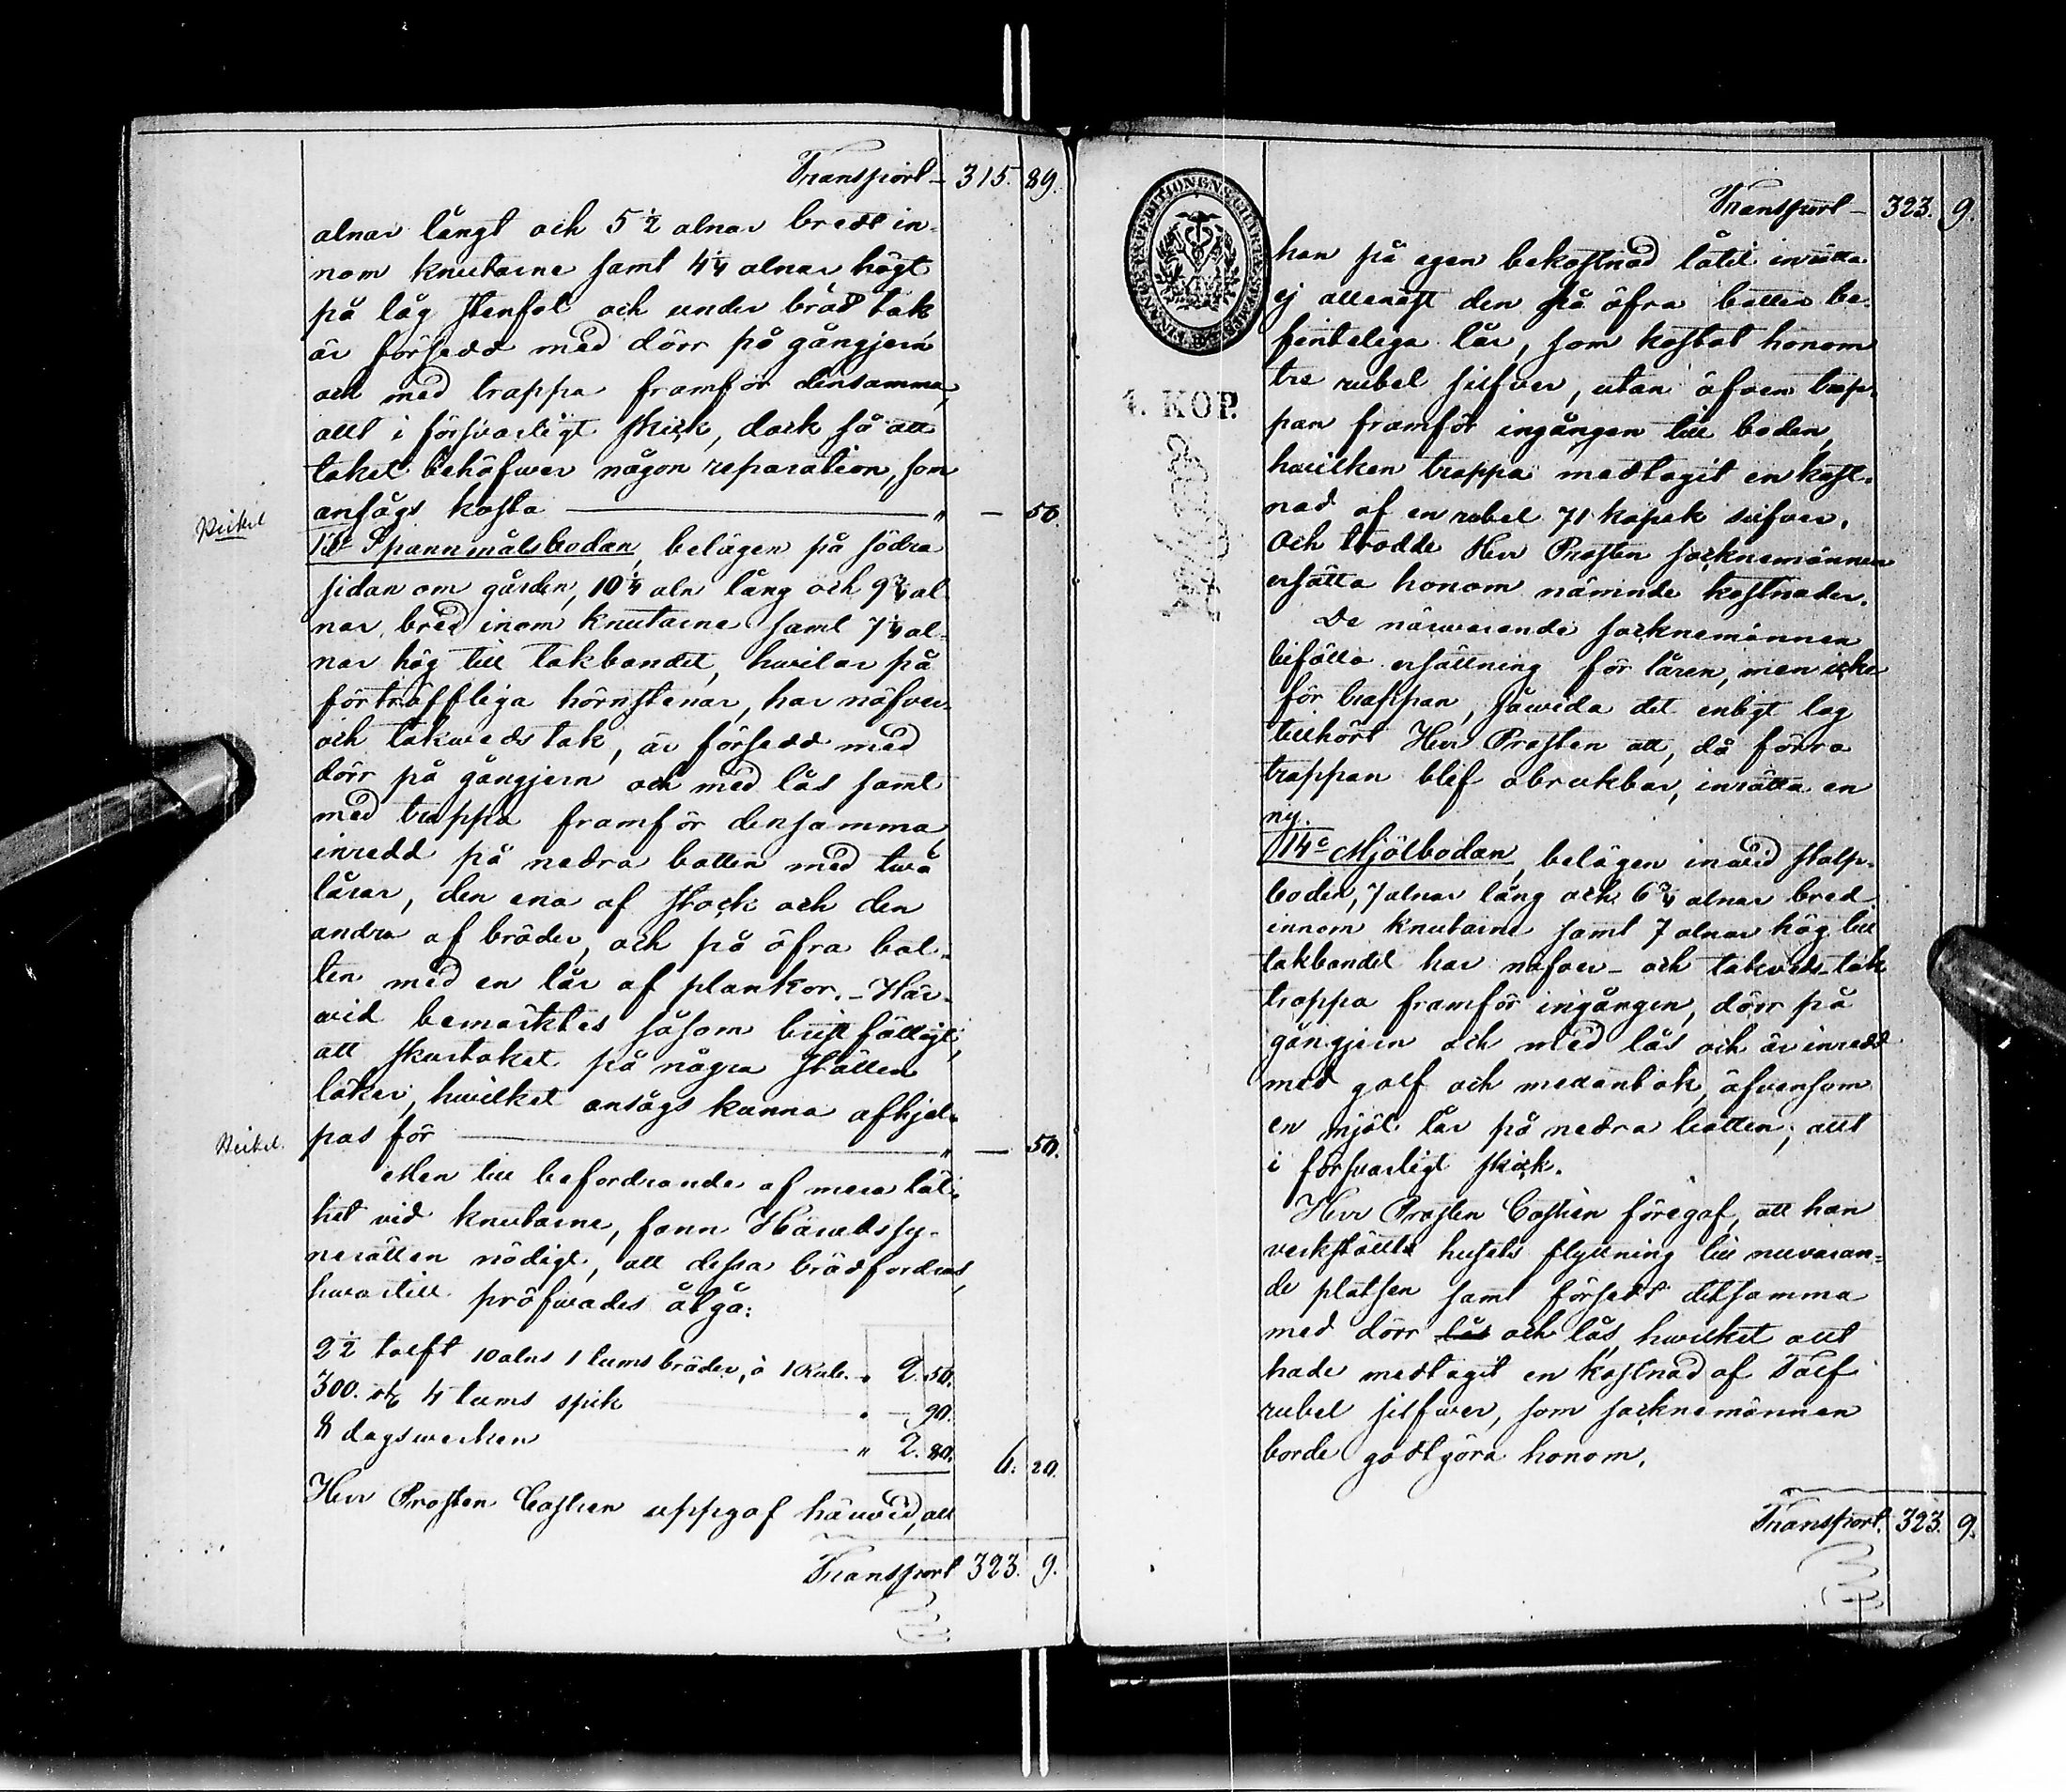 Transport - 315. 89.
alnar långt och 5 1/2 alnar bredt in-
nom knutarne samt 4 1/4 alnar högt
på låg stenfot och under bräd tak
är försedd med dörr på gångjern
och med trappa framför densamma,
allt i försvarligt skick, dock så att
taket behöfwer någon reparation, som
ansågs kosta " — 50
13e Spannmålsbodan, belägen på södra
sidan om gården, 10 1/4 aln lång och 9 3/4 al-
nar bred inom knutarne samt 7 1/4 al-
nar hög till takbandet, hwilar på
förträffliga hörnstenar, har näfver-
och takwedstak, är försedd med
dörr på gångjern och med lås samt
med trappa framför densamma,
inredd på nedra botten med twå
lårar, den ena af stock och den
andra af bräder, och på öfra bot-
ten med en lår af plankor. - Här-
wid bemärktes såsom bristfälligt,
att skurtaket på några ställen
läker, hwilket ansågs kunna afhjel-
pas för " — 50.
Men till befordrande af mera tät-
het vid knutarne, fann Häradssy-
nerätten nödigt, att dessa brädfodras,
hwartill pröfwades åtgå:
2 1/2 tolft 10 alns 1 tums bräder, à 1 Rub. " 2. 50.
300. st 4 tums spik " — 90.
8 dagswerken " 2. 80. 6. 20.
Herr Prosten Castren uppgaf härwid, att
Transport 323. 9.
FINANCE-EXPEDITIONENS CHARTÆ STEMPEL
4. KOP.
Transport - 323. 9.
han på egen bekostnad låtit inrätta
ej allenast den på öfra botten be-
fintelega lår, som kostat honom
tre rubel silfver, utan äfven trap-
pan framför ingången till boden,
hwilken trappa medtagit en kost-
nad af en rubel 71 kopek silfver.
Och trodde Herr Prosten socknemännen
ersätta honom nämnde kostnader.
De närwarande socknemännen
biföllo ersättning för låren, men icke
för trappan, såwida det enligt lag
tillhört Herr Prosten att, då förra
trappan blef obrukbar, inrätta en
ny.
14e Mjölbodan, belägen inwid stolp-
boden, 7 alnar lång och 6 3/4 alnar bred
innom knutarne samt 7 alnar hög till
takbandet har näfver- och takveds-tak
trappa framför ingången, dörr på
gångjern och med lås och är inredd
med golf och mellantak, äfvensom
en mjöl lår på nedra botten; allt
i försvarligt skick.
Herr Prosten Castrén föregaf, att han
verkställt husets flyttning till nuvaran-
de platsen samt försett detsamma
med dörr lås och lås, hwilket allt
hade medtagit en kostnad af Tolf
rubel silfwer, som socknemännen
borde godtgöra honom.
Transport. 323. 9.